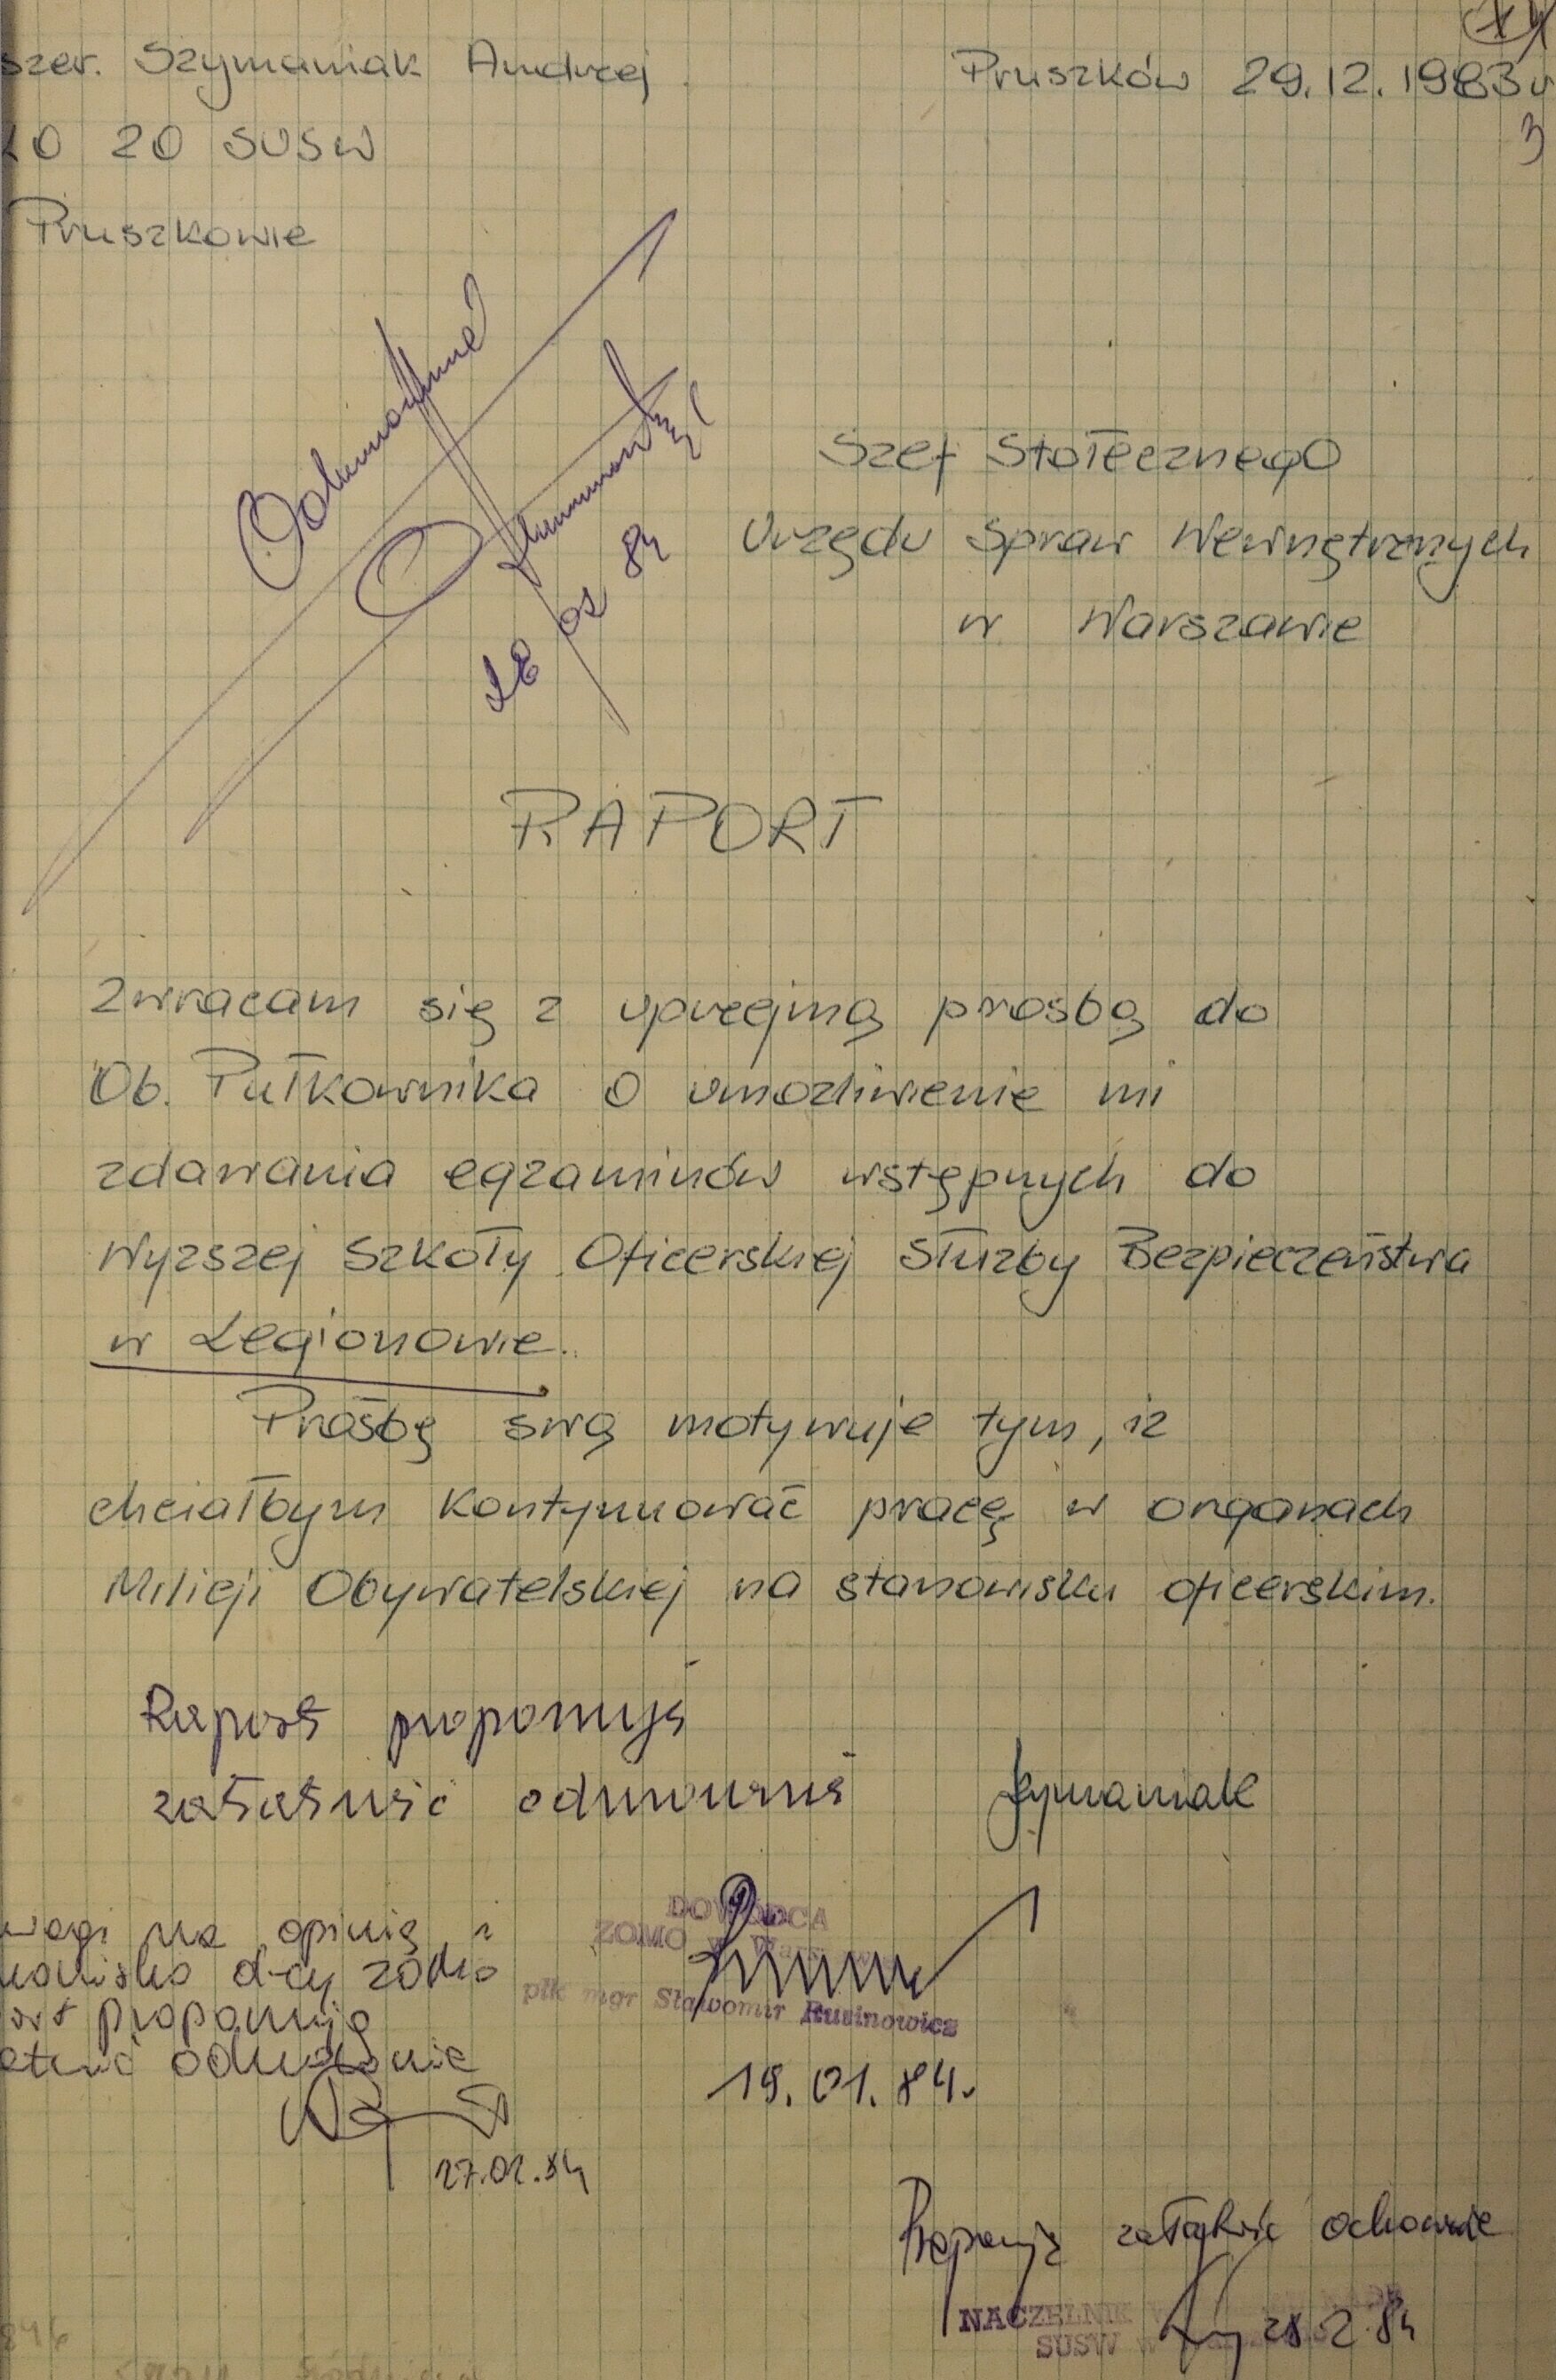 szer. Szymaniak Andrzej
Pruszków 29.12.1983r
3
20 SUSW
Pruszkowie
Odmownie
28 02 84
Szef Stołecznego
Urzędu Spraw Wewnętrznych
w Warszawie
RAPORT
Zwracam się z uprzejmą prosbą do
Ob. Pułkownika o umozliwienie mi
zdawania egzaminów wstępnych do
Wyzszej Szkoły Oficerskiej Słuzby Bezpieczeństwa
w Legionowie.
Prośbę swą motywuje tym, iz
chciałbym kontynuować pracę w organach
Milicji Obywatelskiej na stanowisku oficerskim.
Raport proponuję
załatwić odmownie
Szymaniak
wagi na opinię i
d-cy ZOMO
proponuję
odmownie
27.02.84
DOWÓDCA
ZOMO w Warszawie
płk mgr Sławomir Rusinowicz
19.01.84.
Proponuję załatwić odmownie
NACZELNIK
SUSW w
28.2.84